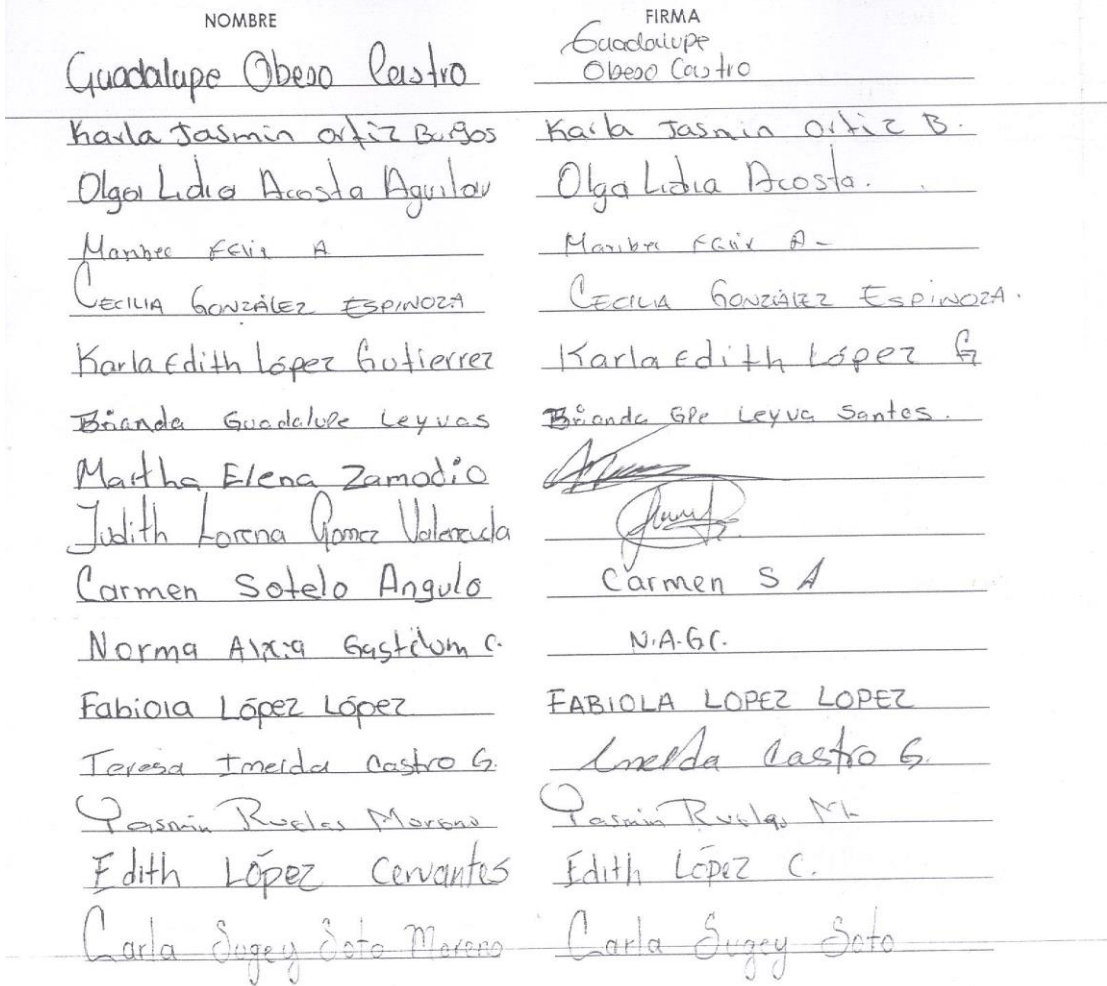 NOMBRE FIRMA
Guadalupe Obeso Castro Guadalupe
Obeso Castro
Karla Jasmin Ortiz Burgos Karla Jasmin Ortiz B.
Olga Lidia Acosta Aguilar Olga Lidia Acosta.
Maribel Felix A Maribel Felix A-
CECILIA GONZÁLEZ ESPINOZA CECILIA GONZÁLEZ ESPINOZA.
Karla Edith López Gutierrez Karla Edith López G
Brianda Guadalupe Leyvas Brianda GPe Leyva Santos.
Martha Elena Zamodio
Judith Lorena Gomez Valenzuela
Carmen Sotelo Angulo Carmen S A
Norma Gastelum C. N.A.G.C.
Fabiola López López FABIOLA LOPEZ LOPEZ
Teresa Imelda Castro G. Imelda Castro G.
Yasmin Ruelas Moreno Yasmin Ruelas M
Edith López Cervantes Edith López C.
Carla Sugey Soto Moreno Carla Sugey Soto